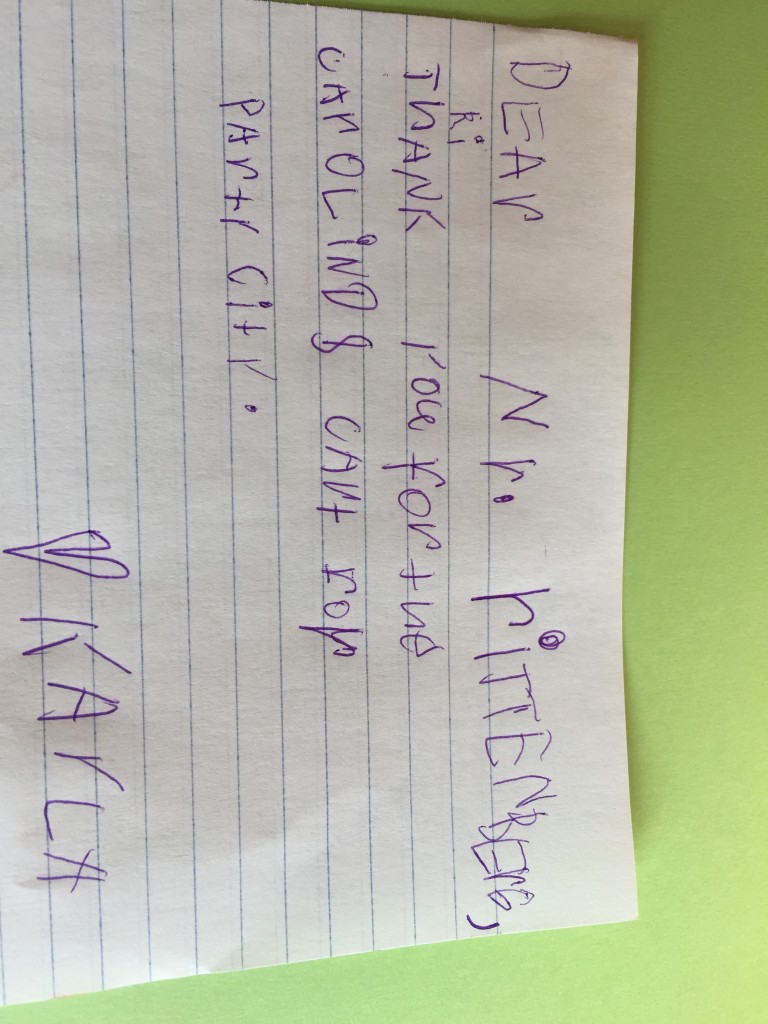 DEAr Nr. riTTENBErG,
Ri
THANK You For the
CArOLiND8 CArt For
PArty City.
KArLA